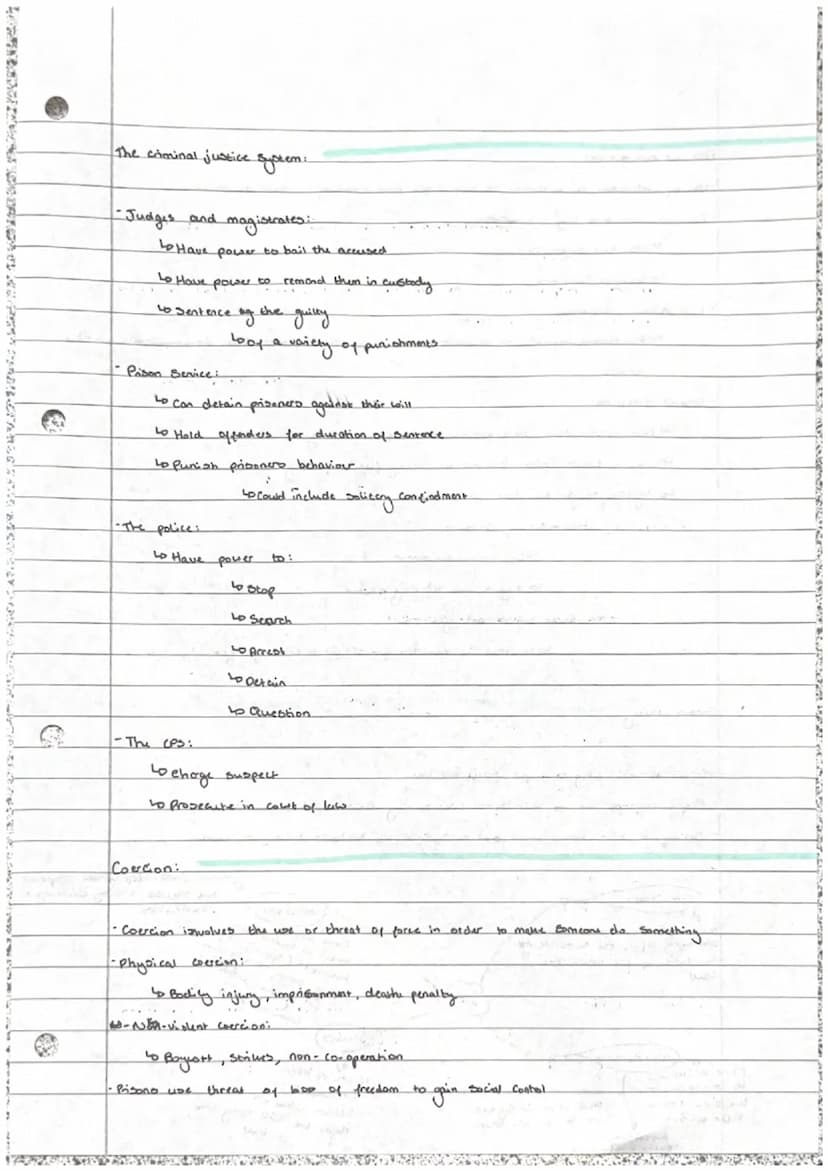 The criminal justice system:
- Judges and magistrates:
↳ Have power to bail the accused
↳ Have power to remand them in custody
↳ Sentence the guilty
↳ Of a variety of punishments
- Prison Service:
↳ Can detain prisoners against their will
↳ Hold offenders for duration of sentence
↳ Punish prisoners behaviour
↳ Could include solitary confindment
- The police:
↳ Have power to:
↳ Stop
↳ Search
↳ Arrest
↳ Detain
↳ Question
- The CPS:
↳ Charge suspect
↳ Prosecute in court of law
Coercion:
- Coercion involves the use or threat of force in order to make someone do something
- Physical coercion:
↳ Bodily injury, imprisonment, death penalty
- Non-violent coercion:
↳ Boycott, strikes, non-co-operation
- Prisons use threat of loss of freedom to gain social control